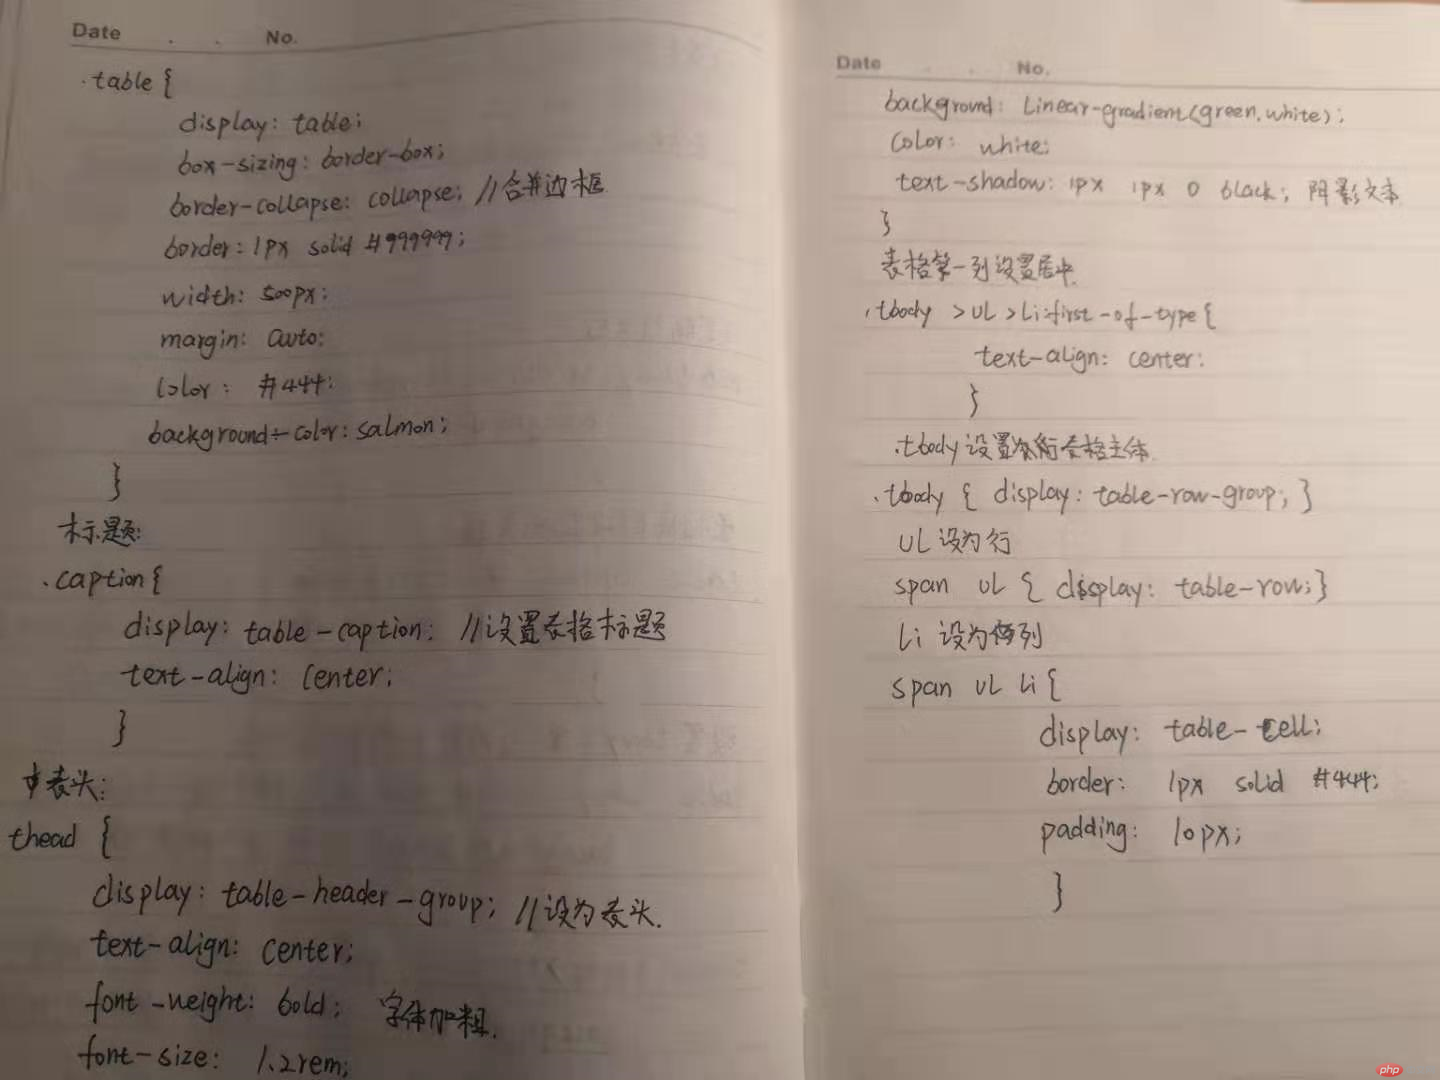 Date . . No.
.table {
display: table;
box-sizing: border-box;
border-collapse: collapse; //合并边框
border: 1px solid #999999;
width: 500px;
margin: auto;
color: #444;
background-color: salmon;
}
标题:
.caption {
display: table-caption; //设置表格标题
text-align: center;
}
表头:
thead {
display: table-header-group; //设为表头.
text-align: center;
font-weight: bold; 字体加粗.
font-size: 1.2rem;
Date . . No.
background: linear-gradient(green,white);
color: white;
text-shadow: 1px 1px 0 black; 阴影文本
}
表格第一列设置居中.
.tbody > ul > li:first-of-type {
text-align: center;
}
.tbody 设置 表格主体.
.tbody { display: table-row-group; }
ul 设为行
span ul { display: table-row; }
li 设为列
span ul li {
display: table-cell;
border: 1px solid #444;
padding: 10px;
}
php